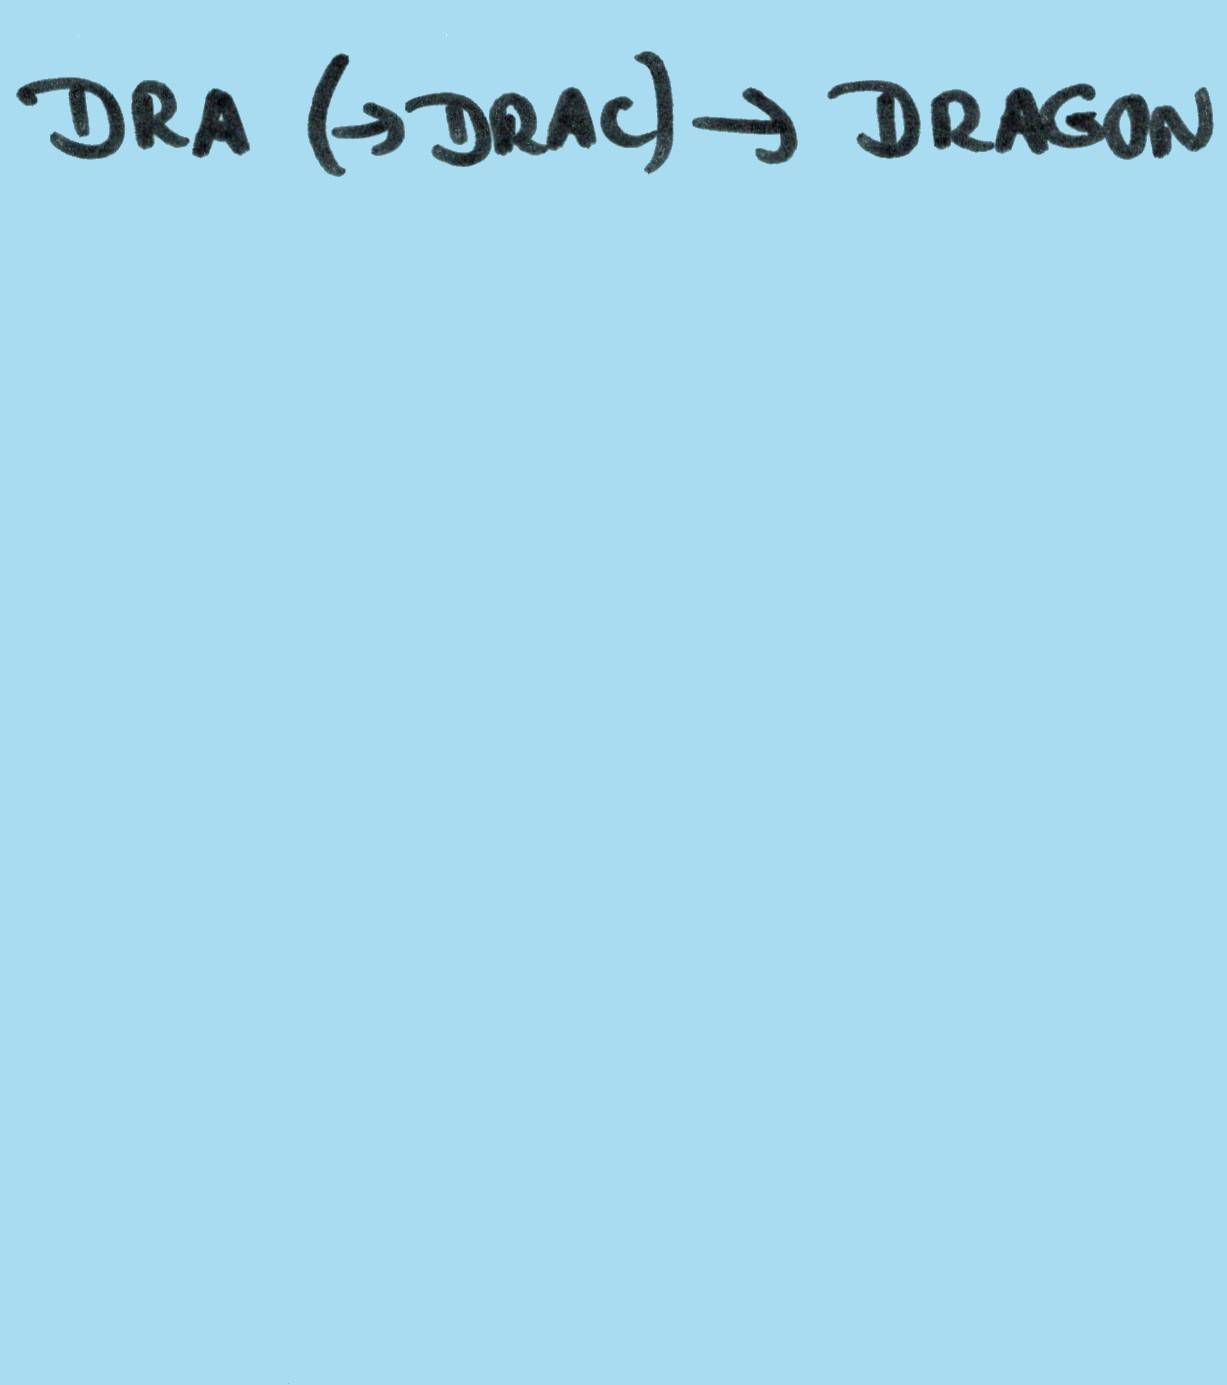 DRA (→DRAC)→ DRAGON